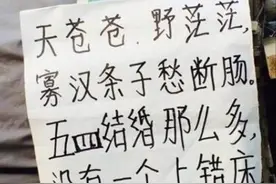 天苍苍、野茫茫,
寡汉条子愁断肠。
五四结婚那么多,
没有一个上错床